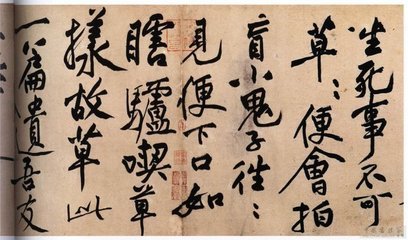 生死事不可
草〻便會拍
盲小鬼子往〻
見便下口如
瞎驢喫草
樣故草此
一篇遺吾友